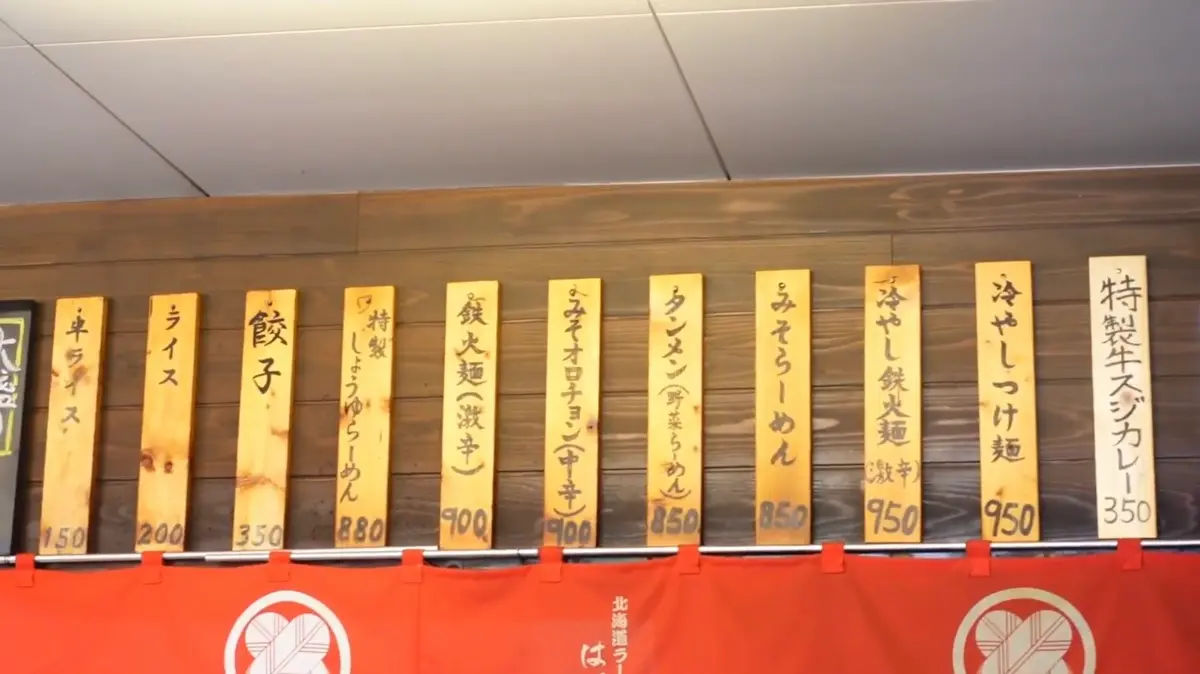 特製牛スジカレー
350
冷やしつけ麺
950
冷やし鉄火麺(激辛)
950
みそらーめん
850
タンメン(野菜らーめん)
850
みそオロチョン(中辛)
900
鉄火麺(激辛)
900
特製
しょうゆらーめん
880
餃子
350
ライス
200
半ライス
150
大盛
北海道ラー
は